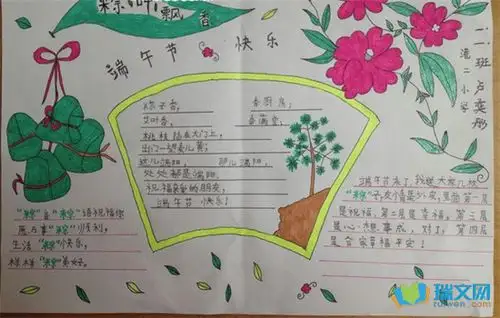 粽叶飘香
端午节 快乐
二一班 卢奕彤
港二小学
粽子香, 香厨房;
艾叶香, 香满堂,
桃枝插在大门上,
出门一望麦儿黄;
这儿端阳, 那儿端阳,
处处都是端阳,
祝福亲爱的朋友,
端午节 快乐!
"粽"言"粽"语祝福你
愿万事"粽"顺利,
生活"粽"快乐,
样样"粽"美好。
端午节来了,我送大家几枚
"粽"子,友情是外皮,里面第一层
是祝福,第二层是幸福,第三层
是心想事成,对了,第四层
是合家幸福平安!
瑞文网
ruiwen.com